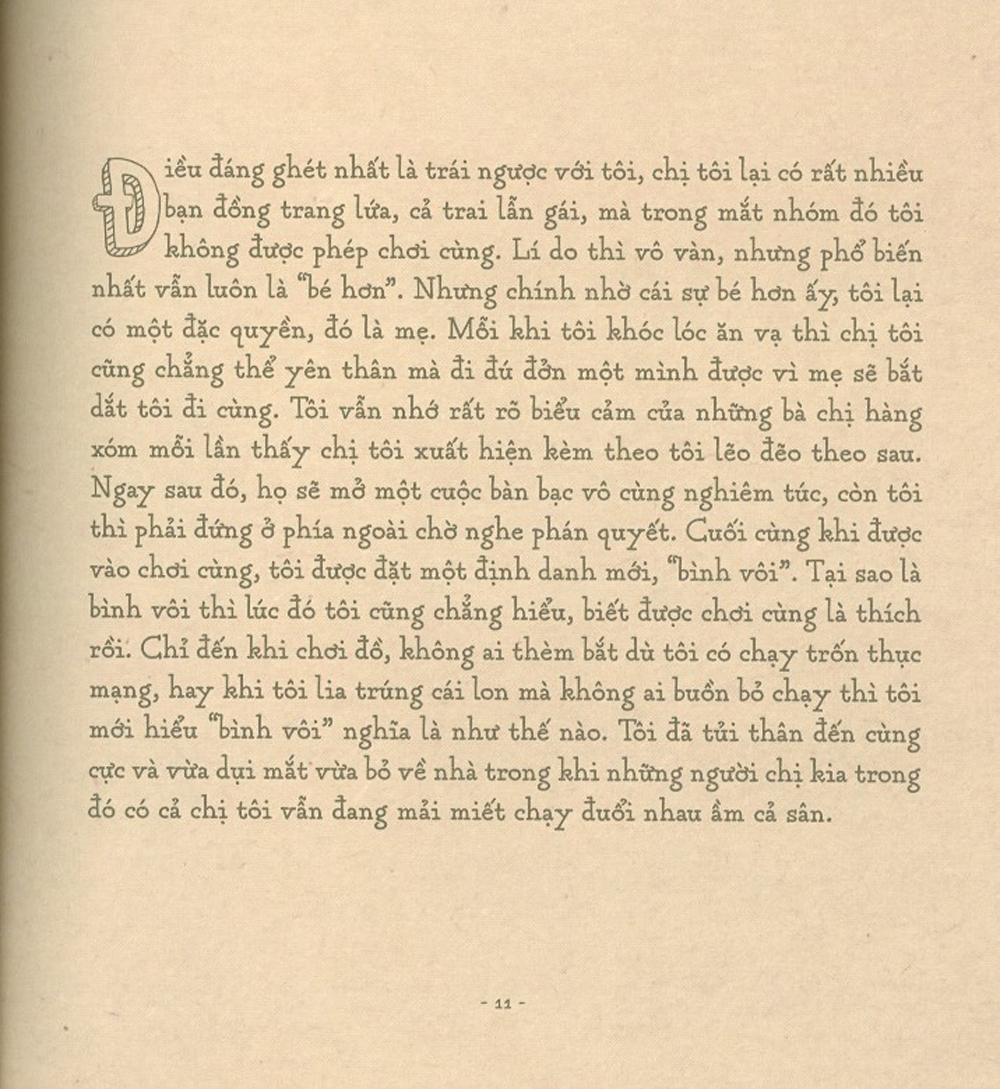 Điều đáng ghét nhất là trái ngược với tôi, chị tôi lại có rất nhiều
bạn đồng trang lứa, cả trai lẫn gái, mà trong mắt nhóm đó tôi
không được phép chơi cùng. Lí do thì vô vàn, nhưng phổ biến
nhất vẫn luôn là “bé hơn”. Nhưng chính nhờ cái sự bé hơn ấy, tôi lại
có một đặc quyền, đó là mẹ. Mỗi khi tôi khóc lóc ăn vạ thì chị tôi
cũng chẳng thể yên thân mà đi đú đởn một mình được vì mẹ sẽ bắt
dắt tôi đi cùng. Tôi vẫn nhớ rất rõ biểu cảm của những bà chị hàng
xóm mỗi lần thấy chị tôi xuất hiện kèm theo tôi lẽo đẽo theo sau.
Ngay sau đó, họ sẽ mở một cuộc bàn bạc vô cùng nghiêm túc, còn tôi
thì phải đứng ở phía ngoài chờ nghe phán quyết. Cuối cùng khi được
vào chơi cùng, tôi được đặt một định danh mới, “bình vôi”. Tại sao là
bình vôi thì lúc đó tôi cũng chẳng hiểu, biết được chơi cùng là thích
rồi. Chỉ đến khi chơi đồ, không ai thèm bắt dù tôi có chạy trốn thục
mạng, hay khi tôi lia trúng cái lon mà không ai buồn bỏ chạy thì tôi
mới hiểu “bình vôi” nghĩa là như thế nào. Tôi đã tủi thân đến cùng
cực và vừa dụi mắt vừa bỏ về nhà trong khi những người chị kia trong
đó có cả chị tôi vẫn đang mải miết chạy đuổi nhau ầm cả sân.
- 11 -